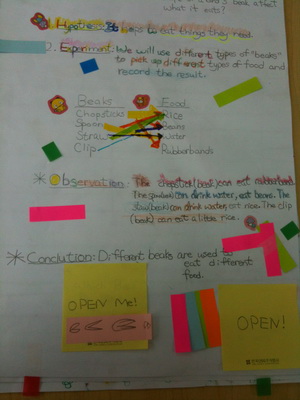 a bird's beak affect
what it eats?
Hypothesis: It helps to eat things they need.
2. Experiment: We will use different types of "beaks"
to pick up different types of food and
record the result.
Beaks Food
Chopsticks Rice
Spoon Beans
Straw water
Clip Rubberbands
* Observation: The chopstick(beak) can eat rubberband.
The spoon(beak) can drink water, eat beans. The
straw(beak) can drink water, eat rice. The clip
(beak) can eat a little rice.
* Conclution: Different beaks are used to
eat different
food.
OPEN Me!
OPEN!